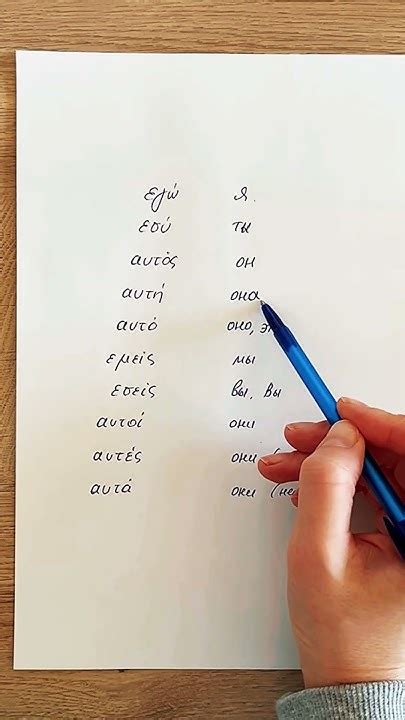 εγώ я.
εσύ ты
αυτός он
αυτή она
αυτό оно,
εμείς мы
εσείς вы, Вы
αυτοί они
αυτές они
αυτά они